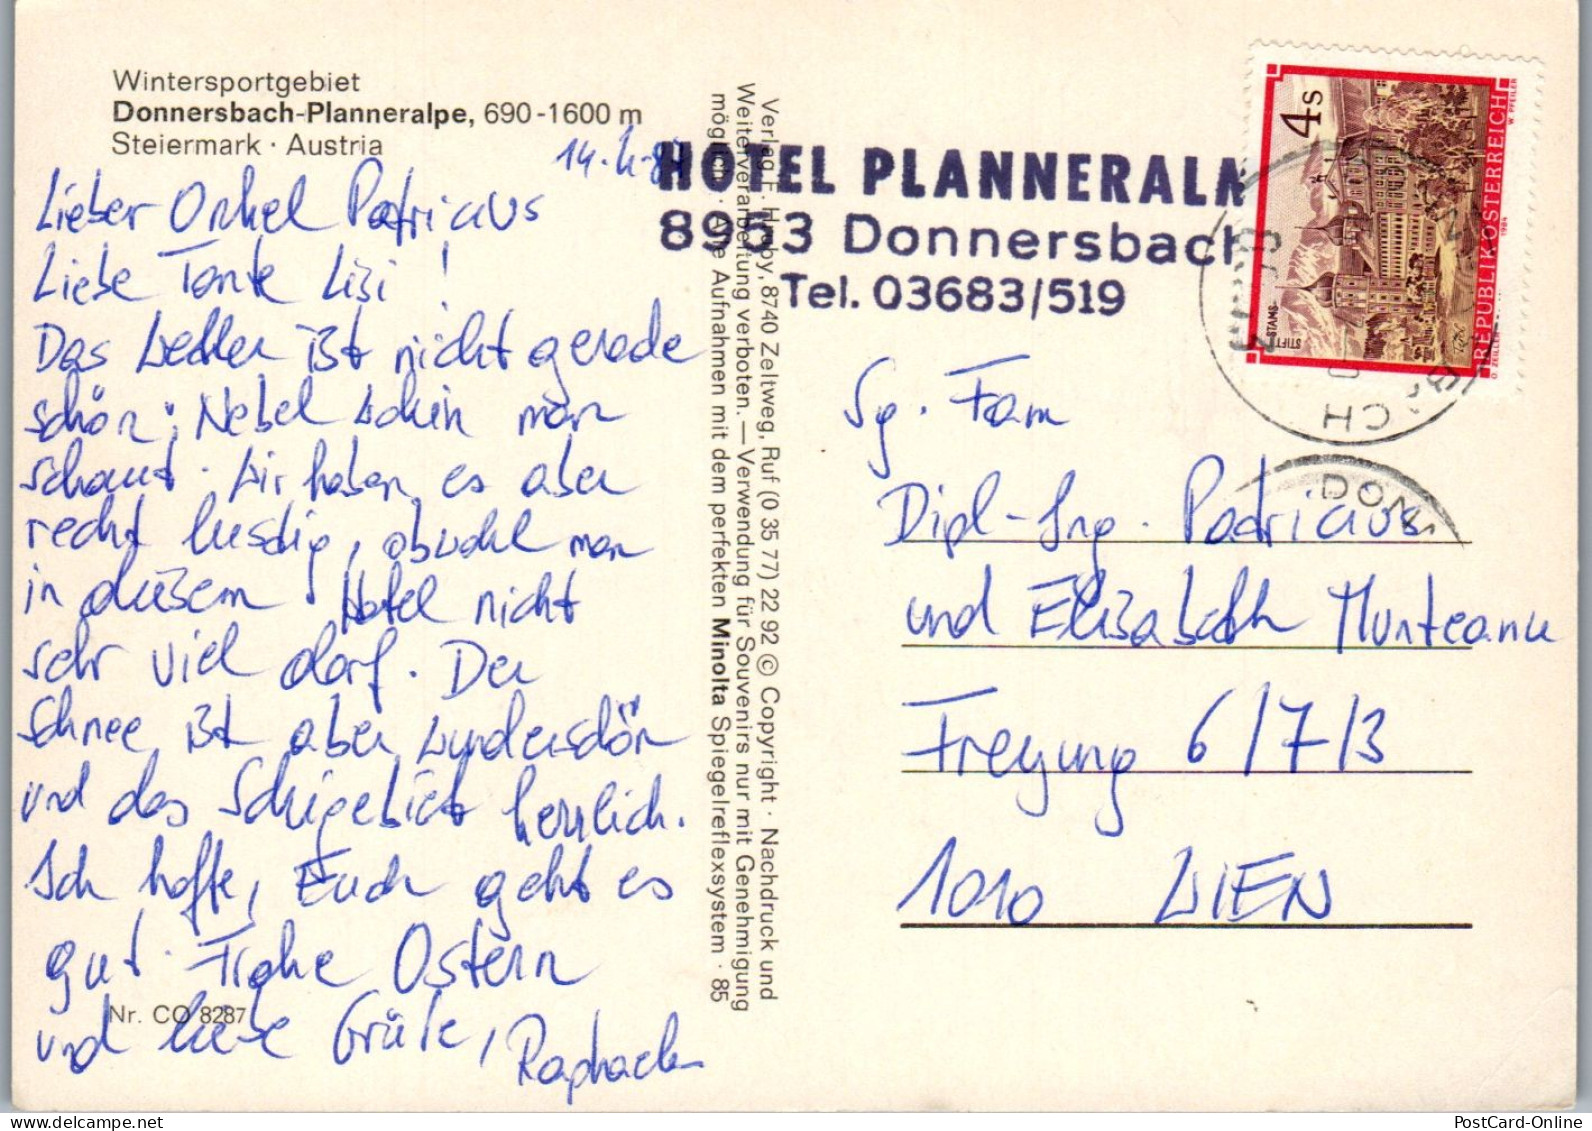 Wintersportgebiet
Donnersbach-Planneralpe, 690-1600 m
Steiermark · Austria
Lieber Onkel Patricius
Liebe Tante Lisi !
Das Wetter ist nicht gerade
schön; Nebel wohin man
schaut. Wir haben es aber
recht lustig, obwohl man
in diesem Hotel nicht
sehr viel darf. Der
Schnee ist aber wunderschön
und das Schigebiet herrlich.
Ich hoffe, Euch geht es
gut. Frohe Ostern
und liebe Grüße,
Raphaela
Nr. CO 8287
Verlag F. Hruby, 8740 Zeltweg, Ruf (0 35 77) 22 92 © Copyright · Nachdruck und
Weiterverarbeitung verboten. — Verwendung für Souvenirs nur mit Genehmigung
möglich. · Alle Aufnahmen mit dem perfekten Minolta Spiegelreflexsystem · 85
HOTEL PLANNERALM
8953 Donnersbach
Tel. 03683/519
4 S
STIFT STAMS
REPUBLIK ÖSTERREICH
W. PFEILER
1984
DONN
Sg. Fam
Dipl-Ing. Patricius
und Elisabeth Munteanu
Freyung 6/7/3
1010 WIEN
PostCard-Online